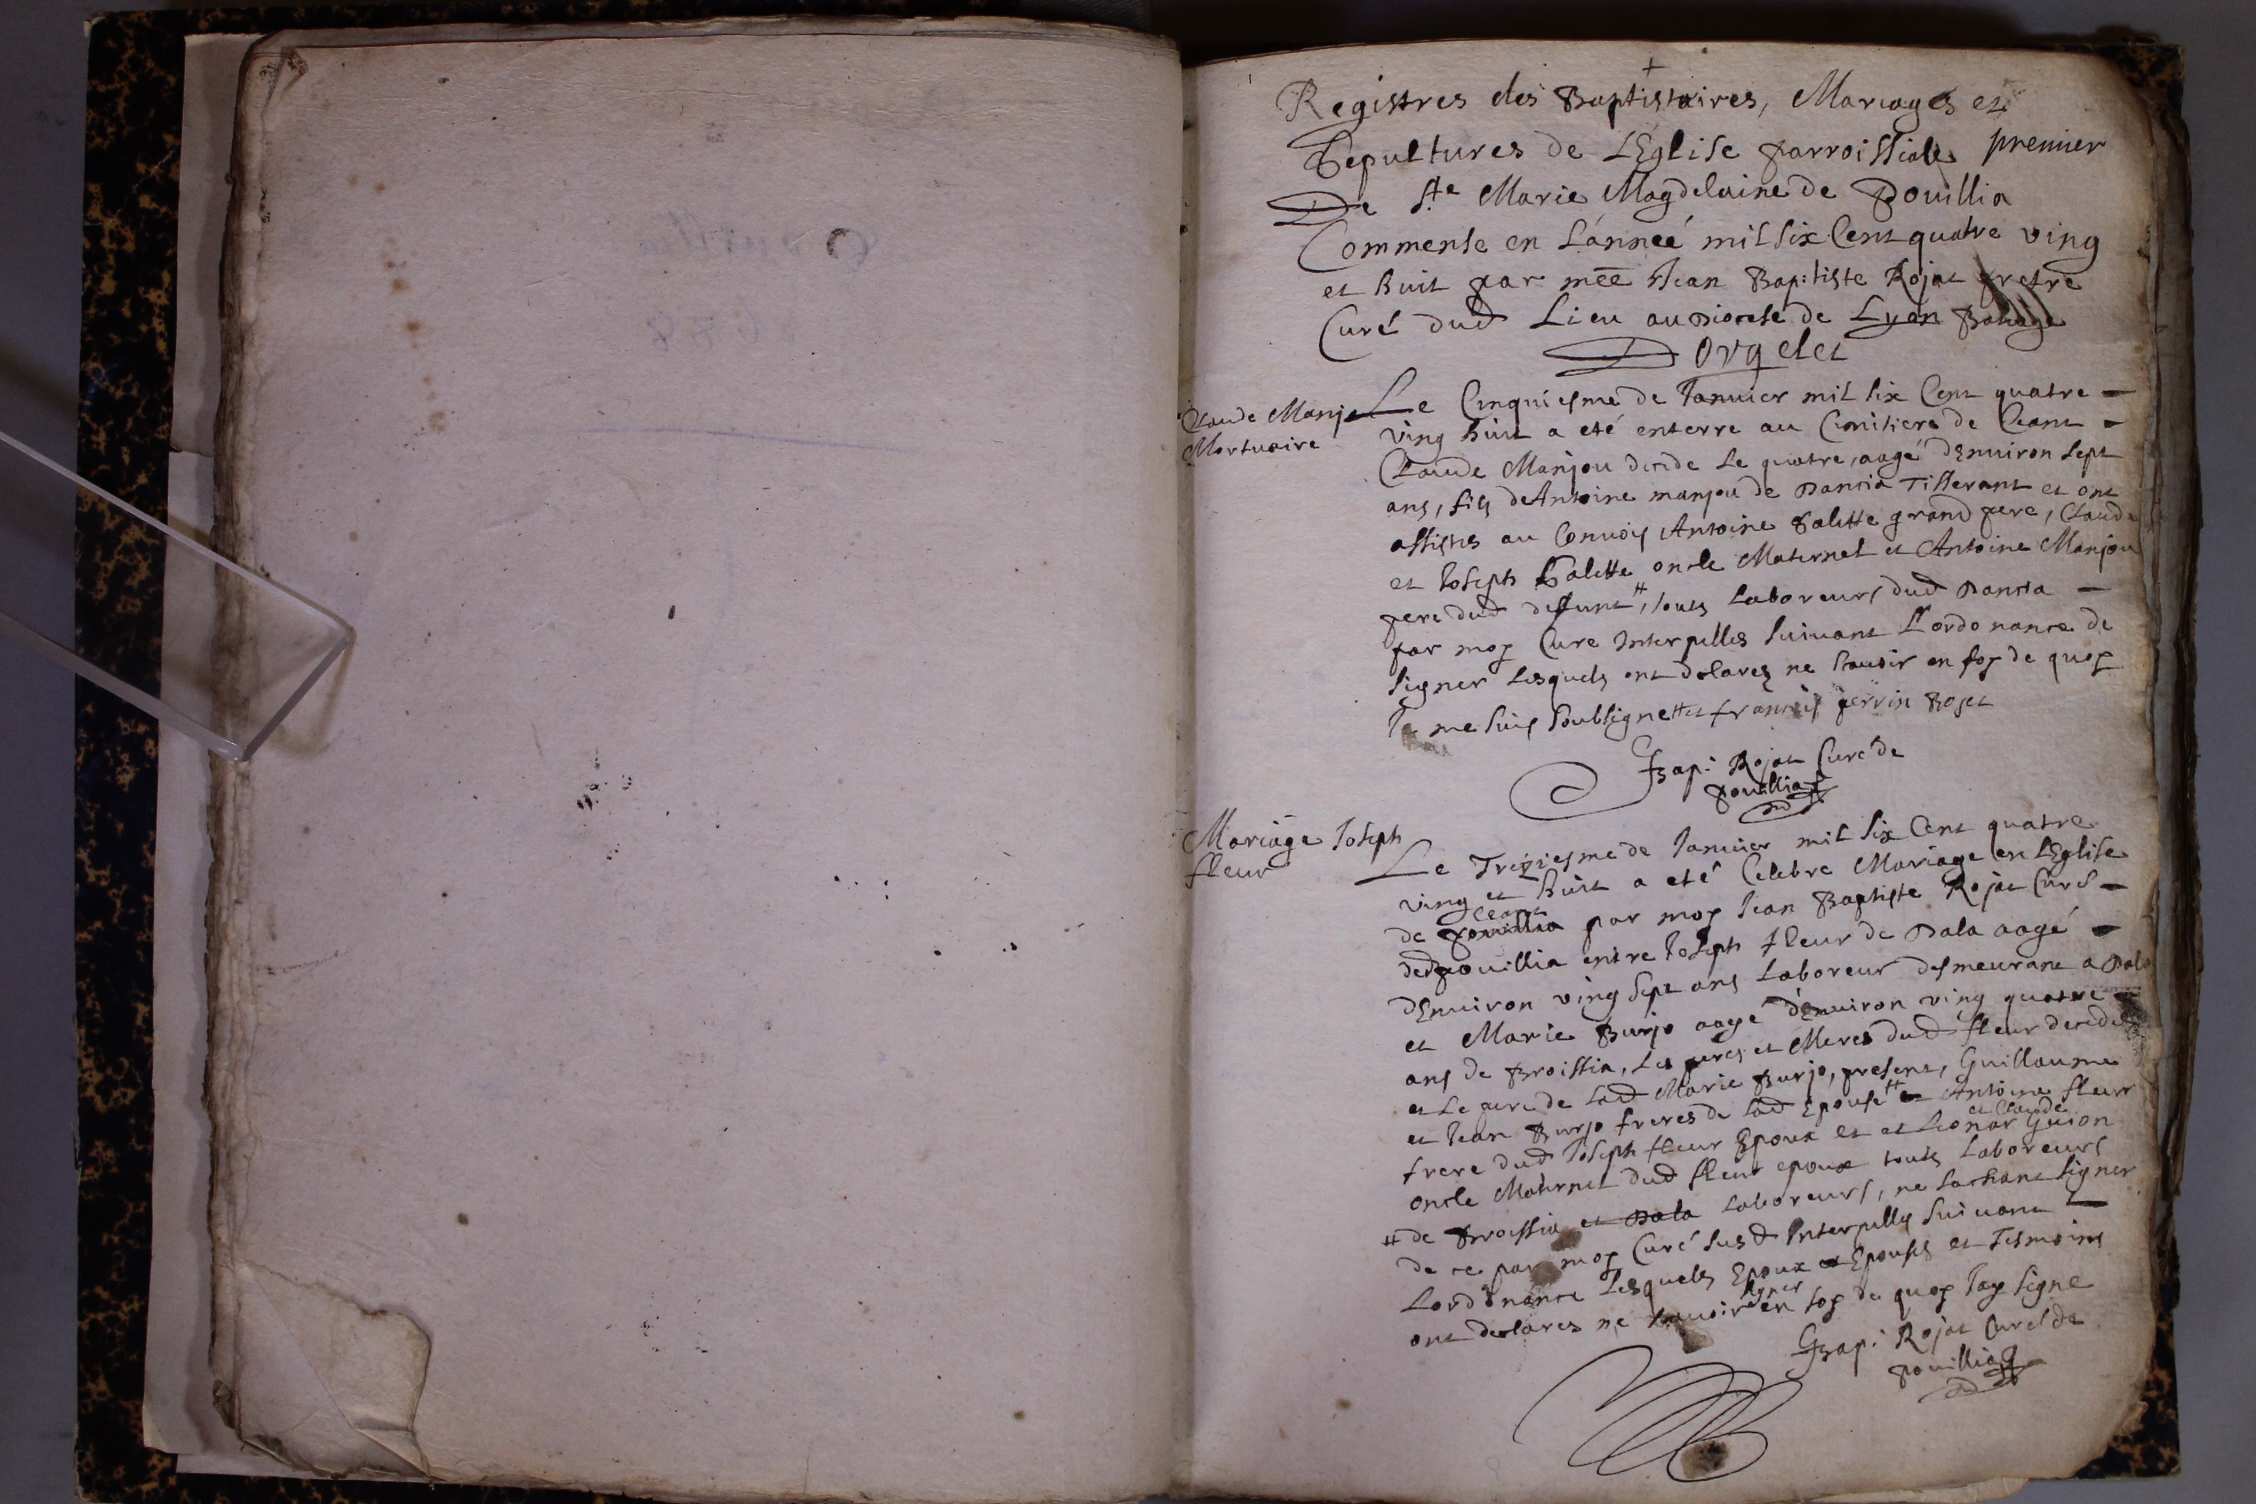 Registres des Baptistaires, Mariages et
Sepultures de L'Eglise parroissiale premier
De Ste Marie Magdelaine de Pouillia
Commense en L'anneé mil six Cent quatre ving
et huit par Jean Baptiste Rojat pretre
Curé dud Lieu au Diocese de Lyon
D Orgelet
Claude Manjou
Mortuaire
Le Cinquiesme de Janvier mil six Cent quatre
ving huit a eté enterre au Cimitiere de Ceant
Claude Manjou decide le quatre, aagé d'Environ sept
ans, fils de Antoine manjou de Dancia Tisserant et ont
assistes au Convois Antoine Palitte grand pere, Claude
et Joseph Palitte oncle Maternel et Antoine Manjou
pere dud deffunt #, touts Laboreurs dud Dancia
par moy Cure Interpelles suivant L'ordonance de
signer Lesquels ont declarez ne scavoir en foy de quoy
Je me suis soubsigne # et francois perrin Rojet
JBap: Rojat Curé de
pouillia
Mariage Joseph
fleur
Le Treziesme de Janvier mil six Cent quatre
ving et huit a eté Celebre Mariage en L'Eglise
de pouillia Ceant par moy Jean Baptiste Rojat Curé
dud pouillia entre Joseph fleur de Dala aagé
d'Environ ving sept ans Laboreur desmeurant a Dala
et Marie Burjo aage d'Environ ving quatre
ans de Broissia, Les peres et Meres dud fleur decedes
et Le pere de Lad Marie Burjo, present, Guillaume
et Jean Burjo freres de Lad Epouse # et Antoine fleur
frere dud Joseph fleur Epoux et et Leonar et Claude Guion
oncle Maternel dud fleur epoux touts Laboreurs
# de Broissia et Dala Laboreurs, ne sachant signer
de ce par moy Curé susd Interpelles suivant
Lordonance Lesquels Epoux et Epouses et Tesmoins
ont declares ne scavoir signer en foy de quoy Jay signe
JBap: Rojat Curé de
pouillia